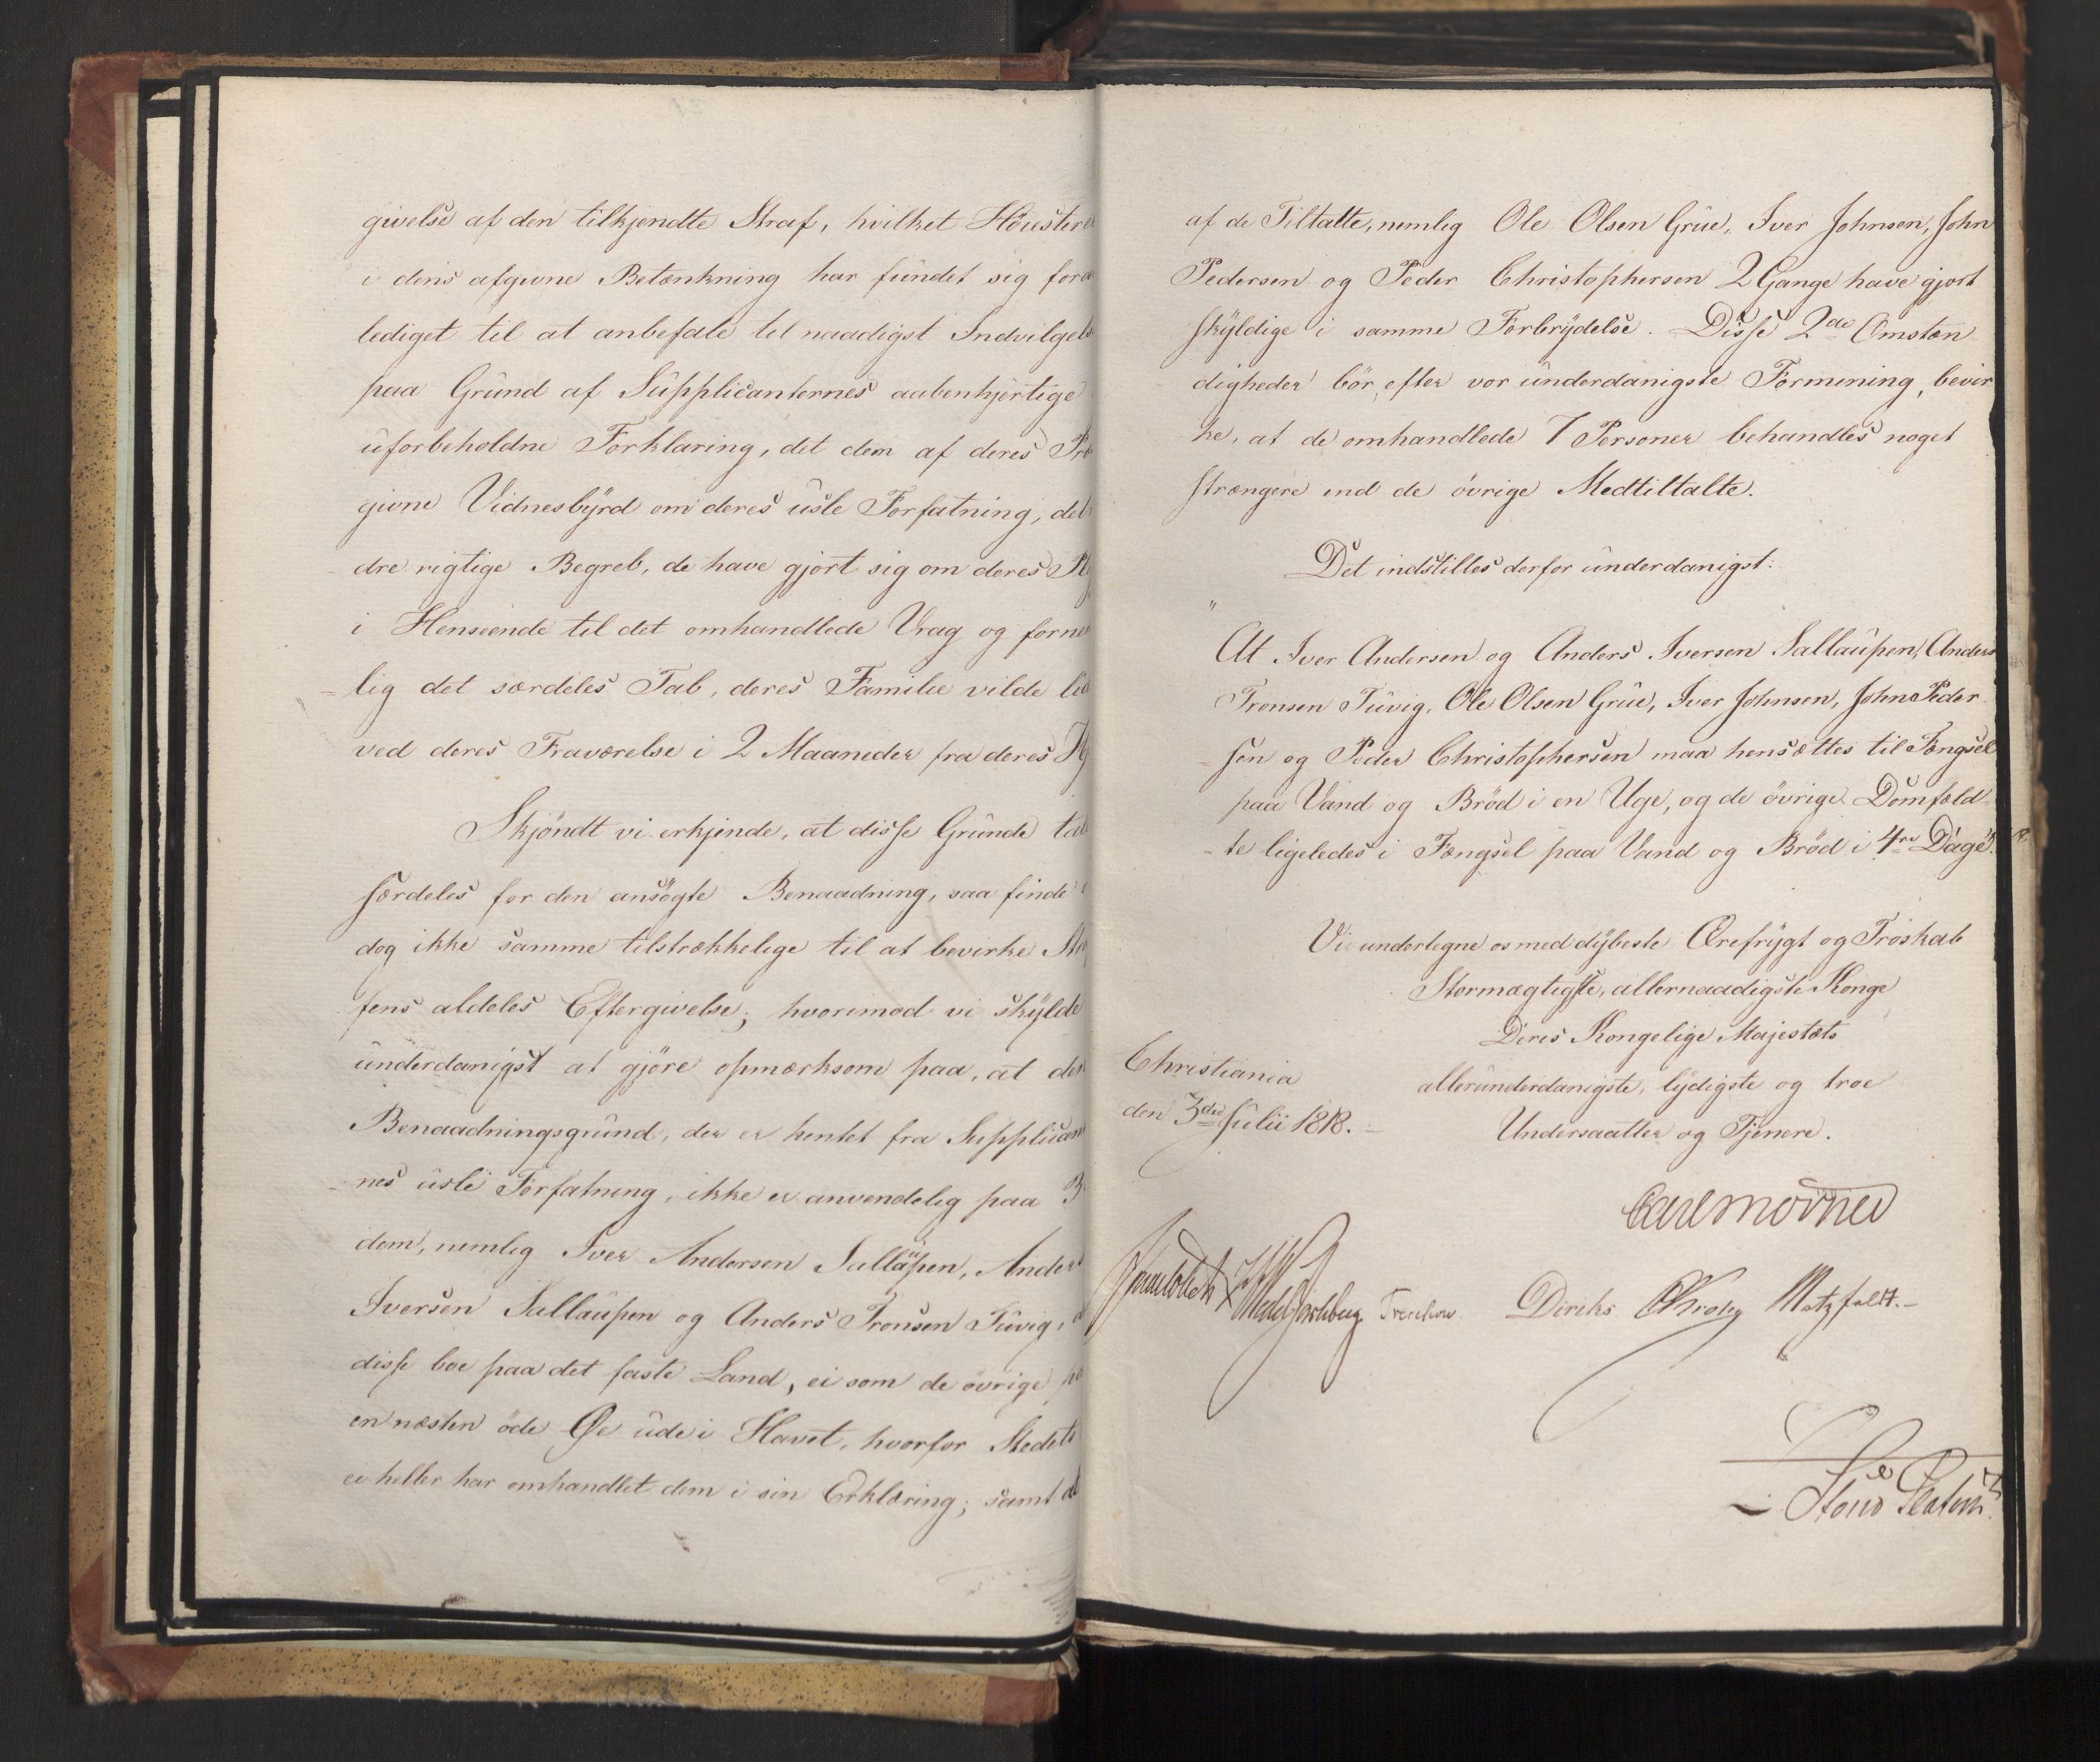 givelse af den tilkjendte Straf, hvilket Høiester
i dens afgivne Betænkning har fundet sig foran
lediget til at anbefale til naadigst Indvilgels
paa Grund af Supplicanternes aabenhjertige
uforbeholdne Forklaring, det dem af deres Pr
givne Vidnesbyrd om deres usle Forfatning, det
dre rigtige Begreb, de have gjort sig om deres Pl
i Henseende til det omhandlede Vrag og forne
lig det særdeles Tab, deres Familie vilde lid
ved deres Fraværelse i 2 Maaneder fra deres H
Skjøndt vi erkjende, at disse Grunde tal
særdeles for den ansøgte Benaadning, saa finde
dog ikke samme tilstrækkelige til at bevirke Stra
fens aldeles Eftergivelse; hvorimod vi skylde
underdanigst at gjøre opmærksom paa, at den
Benaadningsgrund, der er hentet fra Supplicant
nes usle Forfatning, ikke er anvendelig paa 3
dem, nemlig Iver Andersen Sallaupen, Anders
Iversen Sallaupen og Anders Tronsen Tuvig, a
disse boe paa det faste Land, ei som de øvrige pa
en næsten øde Øe ude i Havet, hvorfor Stedets
ei heller har omhandlet dem i sin Erklæring; samt at
af de Tiltalte, nemlig Ole Olsen Grue, Iver Johnsen, John
Pedersen og Peder Christophersen 2 Gange have gjort
skyldige i samme Forbrydelse. Disse 2de Omstæn
digheder bør, efter vor underdanigste Formening, bevir
ke, at de omhandlede 7 Personer behandles noget
strængere end de øvrige Medtiltalte.
Det indstilles derfor underdanigst:
"
At Iver Andersen og Anders Iversen Sallaupen, Anders
Tronsen Tuvig, Ole Olsen Grue, Iver Johnsen, John Peder
sen og Peder Christophersen maa hensættes til Fængsel
paa Vand og Brød i en Uge, og de øvrige Domfæld
te ligeledes i Fængsel paa Vand og Brød i 4re Dage.
Vi underlegne os med dybeste Ærefrygt og Troskab
Stormægtigste, allernaadigste Konge
Deres Kongelige Majestæts
allerunderdanigste, lydigste og troe
Undersaatter og Tjenere.
Christiania
den 3die Julii 1818.
Carl Mörner
Sommerhielm Wedel Jarlsberg Treschow. Diriks CKrohg Motzfeldt.
Stoud Platou